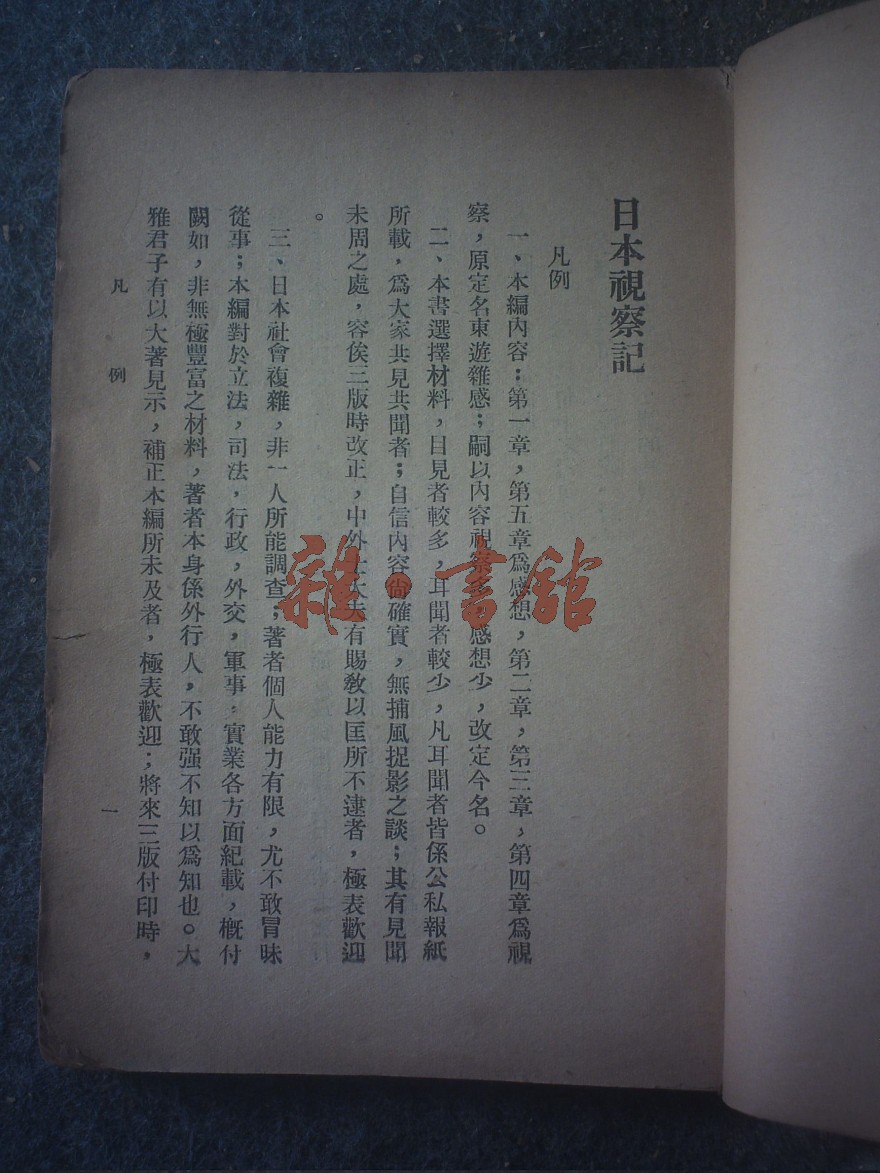 日本視察記
凡例
一、本編內容：第一章，第五章爲感想，第二章，第三章，第四章爲視
察，原定名東遊雜感；嗣以內容視察多，感想少，改定今名。
二、本書選擇材料，目見者較多，耳聞者較少，凡耳聞者皆係公私報紙
所載，爲大家共見共聞者；自信內容尙確實，無捕風捉影之談；其有見聞
未周之處，容俟三版時改正，中外士大夫有賜敎以匡所不逮者，極表歡迎
。
三、日本社會複雜，非一人所能調查；著者個人能力有限，尤不敢冒昧
從事；本編對於立法，司法，行政，外交，軍事，實業各方面紀載，槪付
闕如，非無極豐富之材料，著者本身係外行人，不敢强不知以爲知也。大
雅君子有以大著見示，補正本編所未及者，極表歡迎；將來三版付印時，
凡例
一
雜·書館